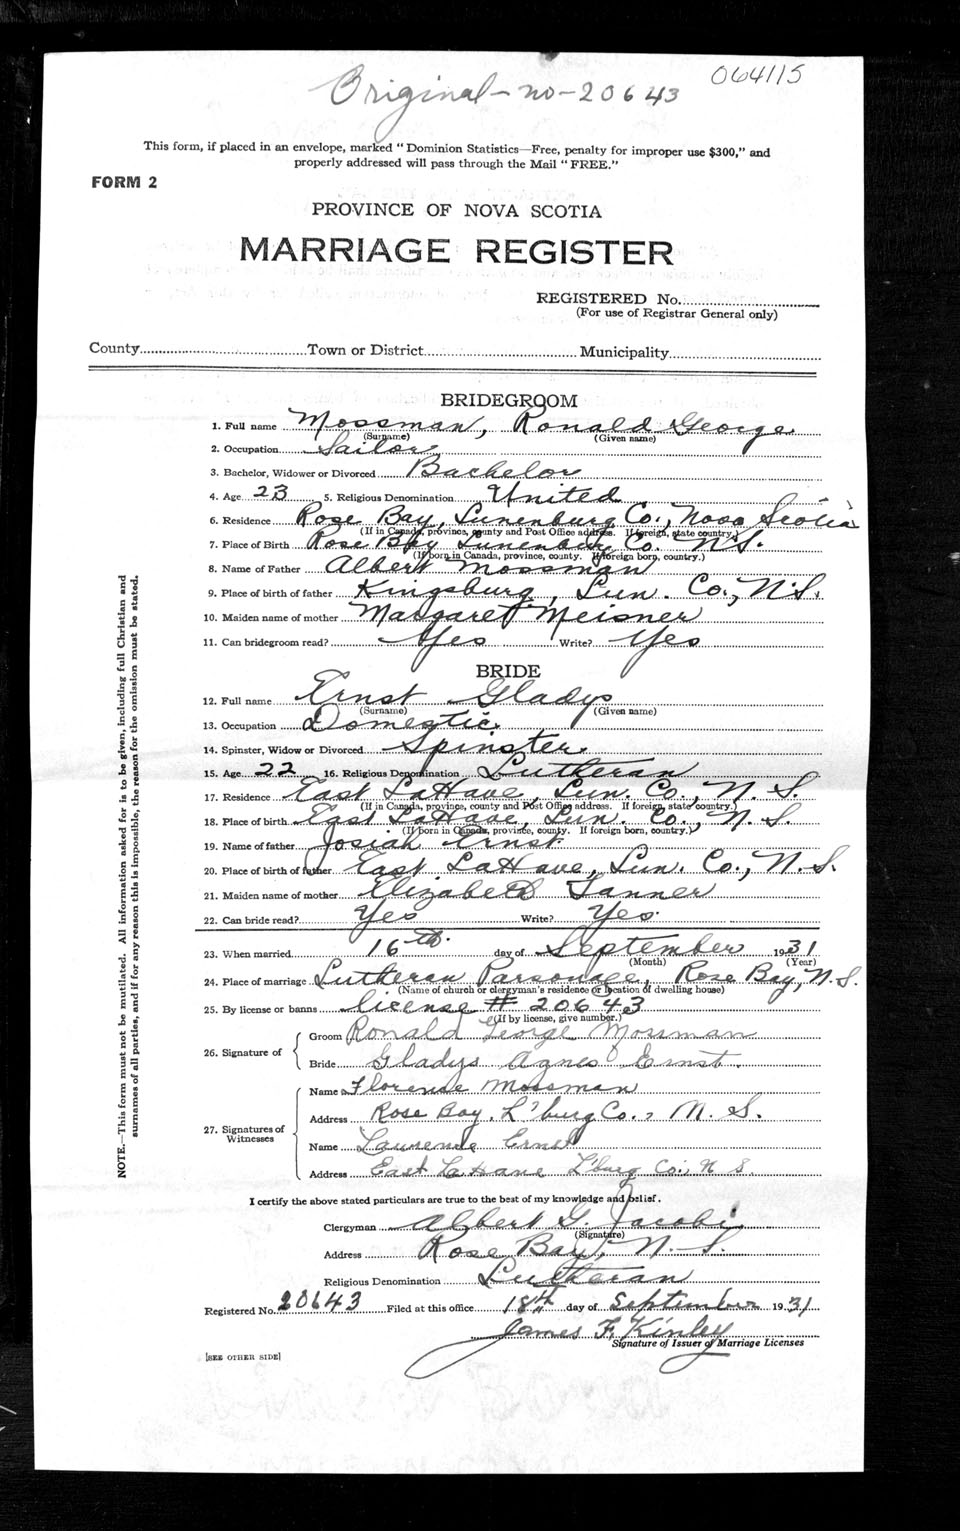 064115
Original - no - 20643
This form, if placed in an envelope, marked "Dominion Statistics—Free, penalty for improper use $300," and
properly addressed will pass through the Mail "FREE."
FORM 2
PROVINCE OF NOVA SCOTIA
MARRIAGE REGISTER
REGISTERED No.
(For use of Registrar General only)
County Town or District Municipality
BRIDEGROOM
1. Full name Mossman, Ronald George
(Surname) (Given name)
2. Occupation Sailor
3. Bachelor, Widower or Divorced Bachelor
4. Age 23 5. Religious Denomination United
6. Residence Rose Bay, Lunenburg Co., Nova Scotia
(If in Canada, province, county and Post Office address. If foreign, state country.)
7. Place of Birth Rose Bay Lunenburg Co. N.S.
(If born in Canada, province, county. If foreign born, country.)
8. Name of Father Albert Mossman
9. Place of birth of father Kingsburg, Lun. Co., N.S.
10. Maiden name of mother Margaret Meisner
11. Can bridegroom read? Yes Write? Yes
BRIDE
12. Full name Ernst Gladys
(Surname) (Given name)
13. Occupation Domestic
14. Spinster, Widow or Divorced Spinster
15. Age 22 16. Religious Denomination Lutheran
17. Residence East LaHave, Lun. Co., N.S.
(If in Canada, province, county and Post Office address. If foreign, state country.)
18. Place of birth East LaHave, Lun. Co., N.S.
(If born in Canada, province, county. If foreign born, country.)
19. Name of father Josiah Ernst
20. Place of birth of father East LaHave, Lun. Co., N.S.
21. Maiden name of mother Elizabeth Tanner
22. Can bride read? Yes Write? Yes
23. When married 16th day of September 1931
(Month) (Year)
24. Place of marriage Lutheran Parsonage, Rose Bay, N.S.
(Name of church or clergyman's residence or location of dwelling house)
25. By license or banns license # 20643
(If by license, give number.)
26. Signature of
Groom Ronald George Mossman
Bride Gladys Agnes Ernst
27. Signatures of Witnesses
Name Florence Mossman
Address Rose Bay, L'burg Co., N.S.
Name Lawrence Ernst
Address East LaHave L'burg Co., N S.
I certify the above stated particulars are true to the best of my knowledge and belief.
Clergyman Albert G. Jacobi
(Signature)
Address Rose Bay, N.S.
Religious Denomination Lutheran
Registered No. 20643 Filed at this office 18th day of September 1931
James F. Kinley
Signature of Issuer of Marriage Licenses
[SEE OTHER SIDE]
NOTE.—This form must not be mutilated. All information asked for is to be given, including full Christian and
surnames of all parties, and if for any reason this is impossible, the reason for the omission must be stated.